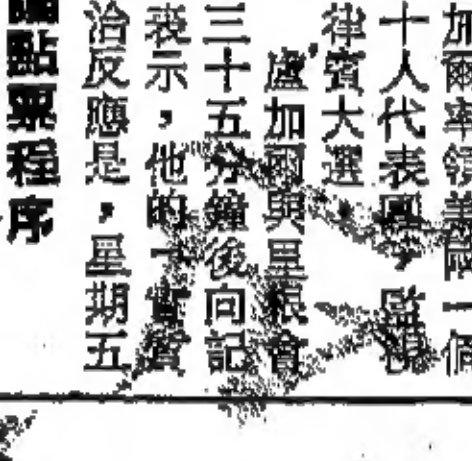 加爾率領美國一個
十人代表團，監視
律賓大選，
盧加爾與里根會
三十五分鐘後向記
表示，他的「實質
治反應是，星期五
點票程序